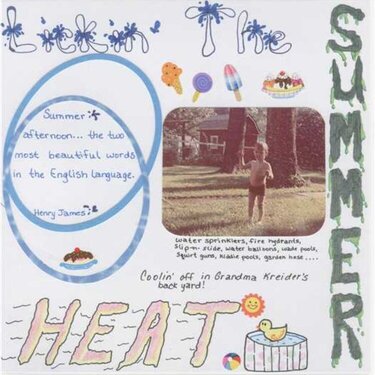 Lickin' The
SUMMER
Summer
afternoon... the two
most beautiful words
in the English language.
Henry James
water sprinklers, fire hydrants,
slip-n-slide, water balloons, wade pools,
squirt guns, kiddie pools, garden hose ....
Coolin' off in Grandma Kreider's
back yard!
HEAT